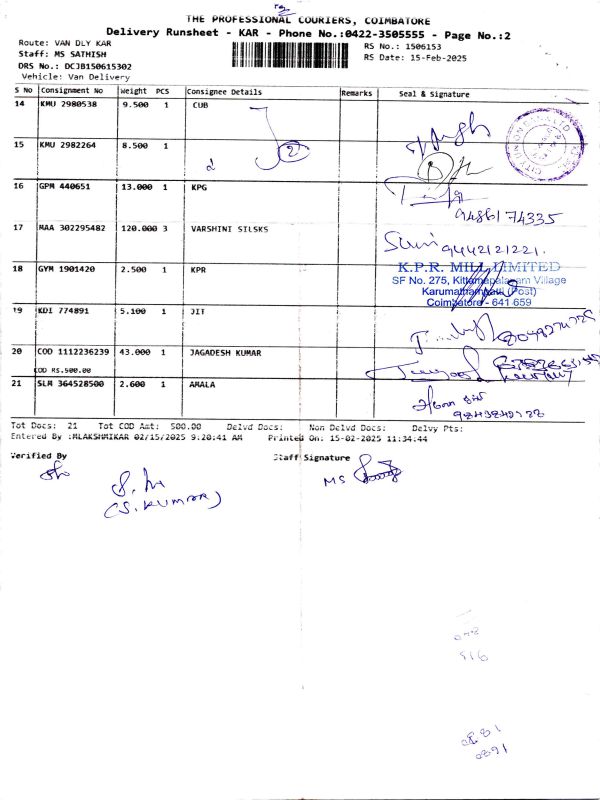 THE PROFESSIONAL COURIERS, COIMBATORE
Delivery Runsheet - KAR - Phone No.:0422-3505555 - Page No.:2
Route: VAN DLY KAR
RS No.: 1506153
Staff: MS SATHISH
RS Date: 15-Feb-2025
DRS No.: DCJB150615302
Vehicle: Van Delivery
S No Consignment No Weight PCS Consignee Details Remarks Seal & Signature
14 KMU 2980538 9.500 1 CUB
15 KMU 2982264 8.500 1
2
16 GPM 440651 13.000 1 KPG
9486174335
17 MAA 302295482 120.000 3 VARSHINI SILSKS
9442121221.
18 GYM 1901420 2.500 1 KPR
K.P.R. MILL LIMITED
SF No. 275, Kittampalayam Village
Karumathampatti (Post)
Coimbatore - 641 659
19 KDI 774891 5.100 1 JIT
20 COD 1112236239 43.000 1 JAGADESH KUMAR
COD RS.500.00
21 SLM 364528500 2.600 1 AMALA
Tot Docs: 21 Tot COD Amt: 500.00 Delvd Docs: Non Delvd Docs: Delvy Pts:
Entered By :MLAKSHMIKAR 02/15/2025 9:20:41 AM Printed On: 15-02-2025 11:34:44
Verified By
Staff Signature
MS
(S. KUMAR)